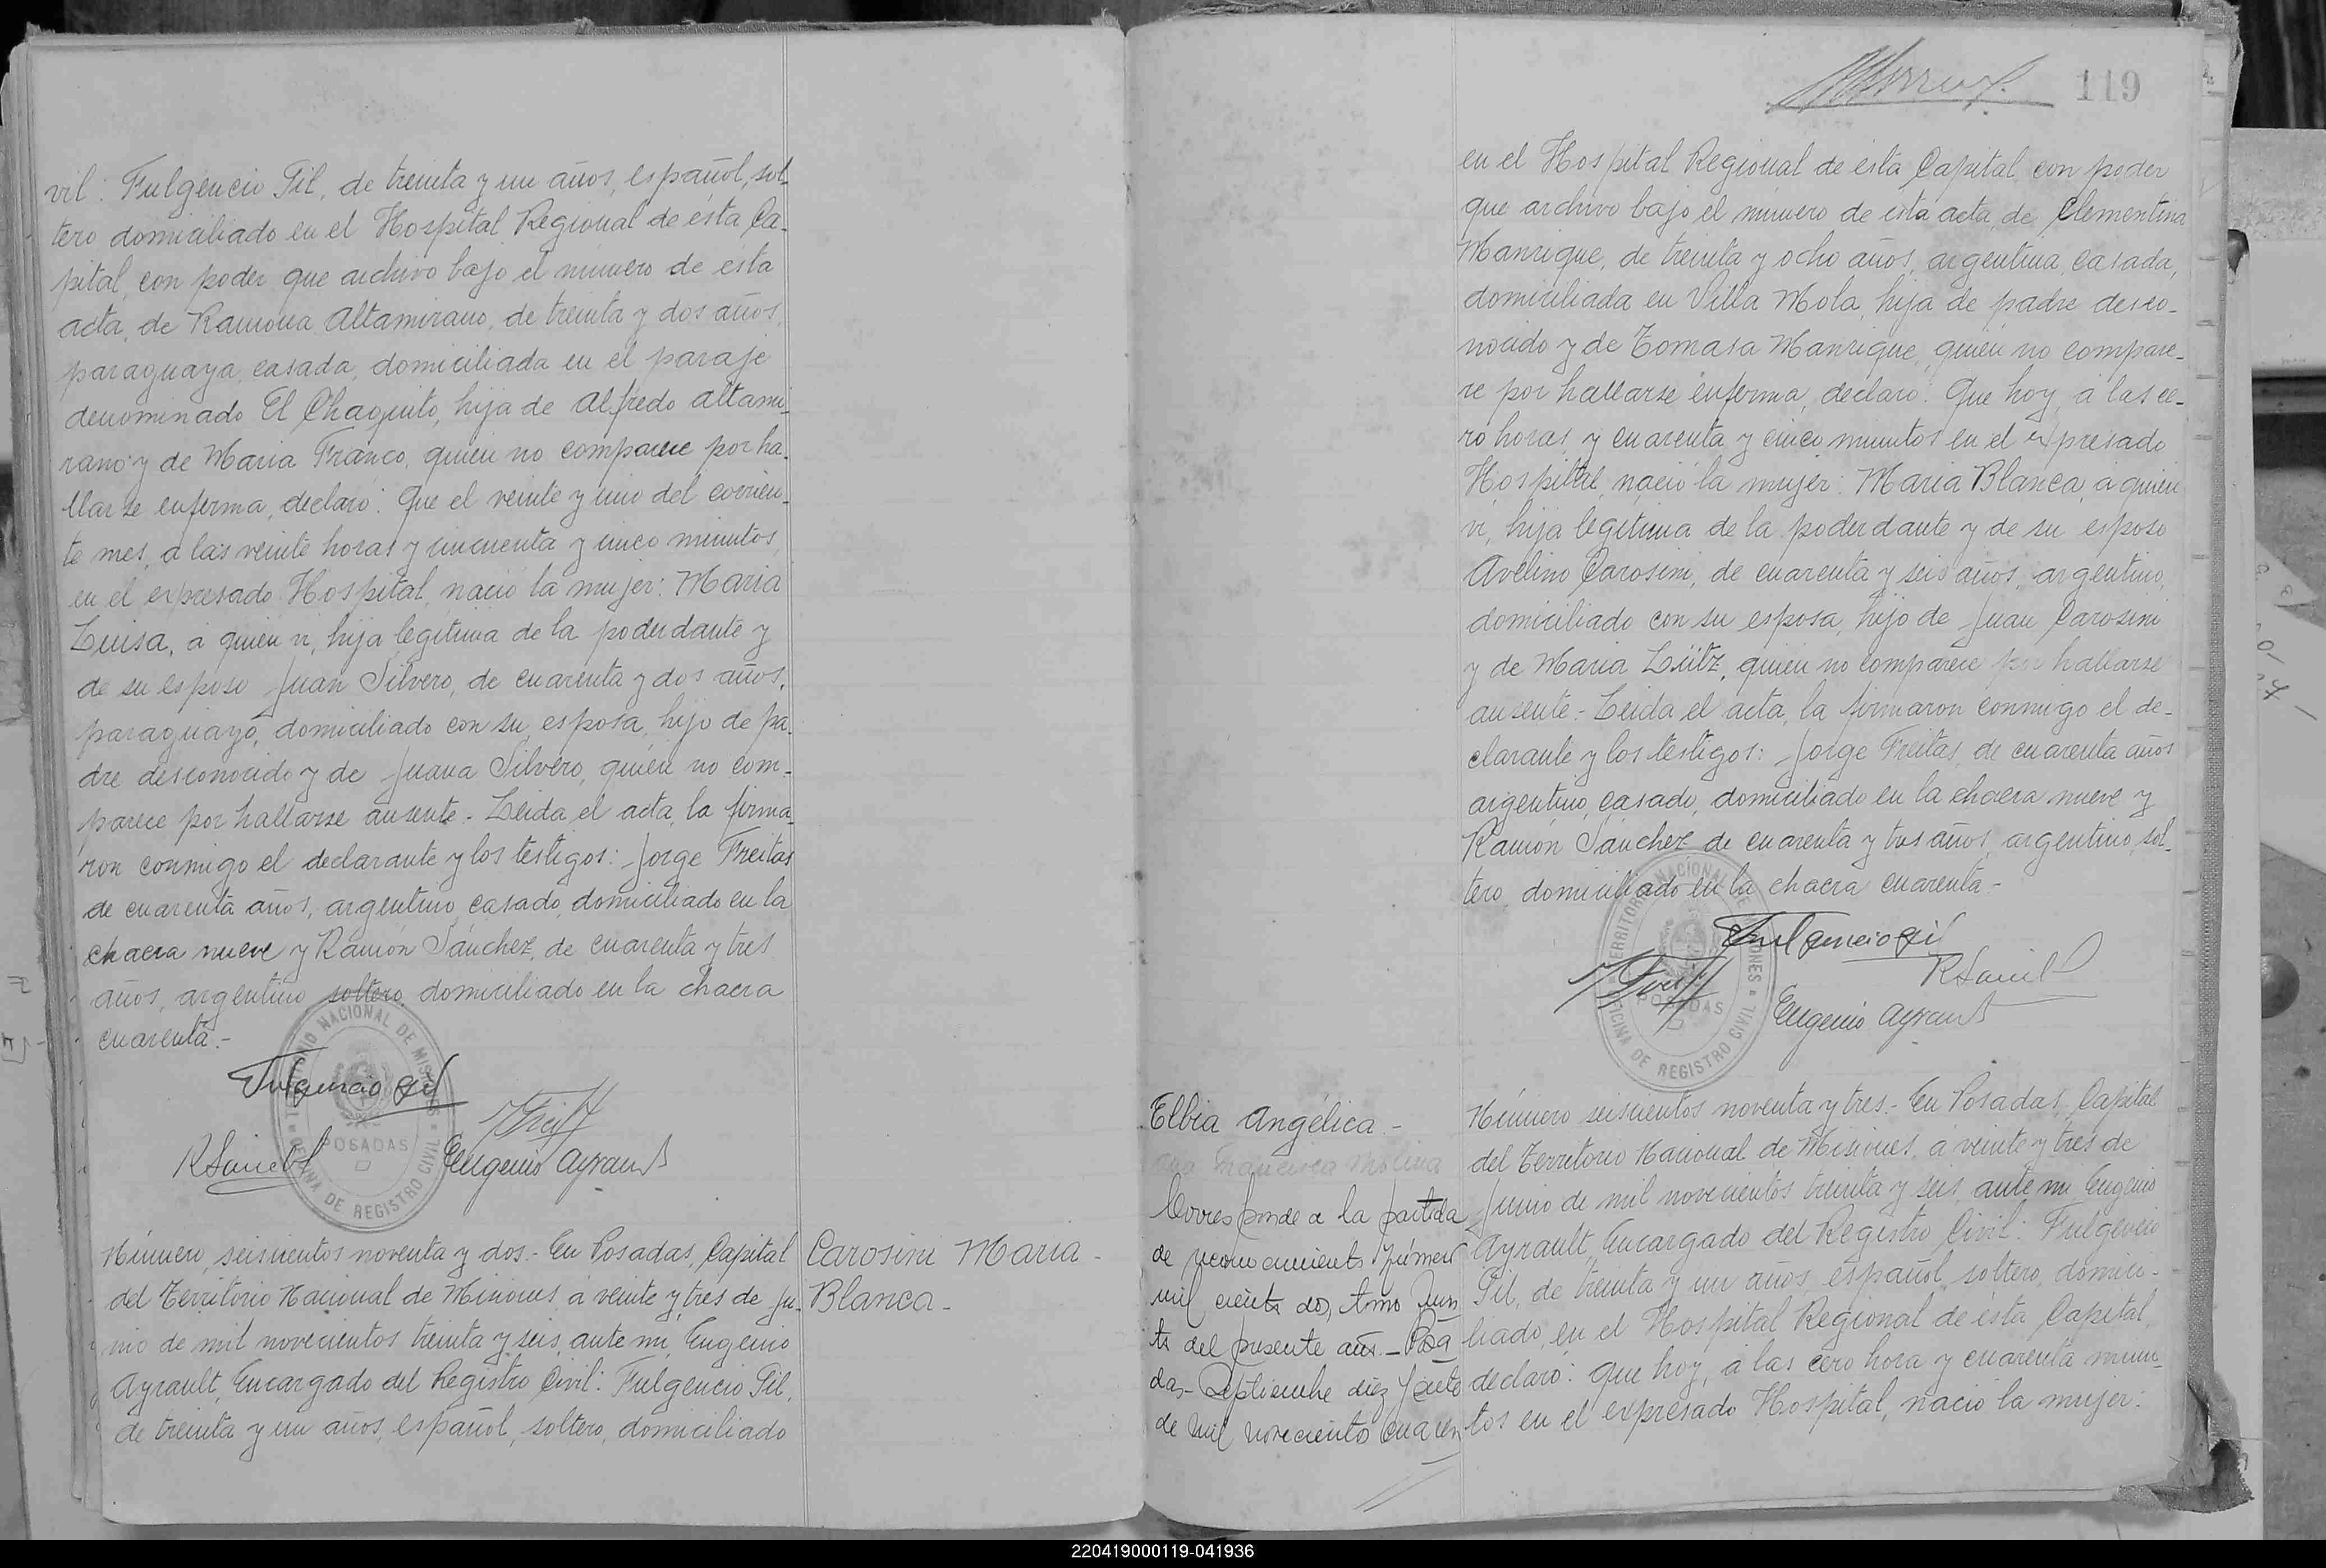 vil: Fulgencio Gil, de treinta y un años, español, sol-
tero domiciliado en el Hospital Regional de ésta Ca-
pital, con poder que archivo bajo el número de ésta
acta, de Ramona Altamirano, de treinta y dos años,
paraguaya, casada, domiciliada en el paraje
denominado El Chaquito, hija de Alfredo Altami-
rano y de Maria Franco, quien no comparece por ha-
llarse enferma, declaró: Que el veinte y uno del corrien-
te mes, a las veinte horas y cincuenta y cinco minutos,
en el expresado Hospital, nació la mujer: Maria
Luisa, a quien vi, hija legítima de la poderdante y
de su esposo Juan Silvero, de cuarenta y dos años,
paraguayo, domiciliado con su esposa, hijo de pa-
dre desconocido y de Juana Silvero, quien no com-
parece por hallarse ausente.- Leida el acta, la firma-
ron conmigo el declarante y los testigos: Jorge Freitas
de cuarenta años, argentino, casado, domiciliado en la
chacra nueve y Ramón Sánchez, de cuarenta y tres
años, argentino soltero, domiciliado en la chacra
cuarenta.-
Fulgencio Gil
Eugenio Ayrault
TERRITORIO NACIONAL DE MISIONES
POSADAS
OFICINA DE REGISTRO CIVIL
Número seiscientos noventa y dos.- En Posadas, Capital
del Territorio Nacional de Misiones, a veinte y tres de Ju-
nio de mil novecientos treinta y seis, ante mi, Eugenio
Ayrault, Encargado del Registro Civil: Fulgencio Gil,
de treinta y un años, español, soltero, domiciliado
Carosini Maria
Blanca-
119
en el Hospital Regional de ésta Capital, con poder
que archivo bajo el número de esta acta, de Clementina
Manrique, de treinta y ocho años, argentina, casada,
domiciliada en Villa Mola, hija de padre desco-
nocido y de Tomasa Manrique, quien no compare-
ce por hallarse enferma, declaró: Que hoy, a las ce-
ro horas y cuarenta y cinco minutos en el expresado
Hospital, nació la mujer: Maria Blanca, a quien
vi, hija legítima de la poderdante y de su esposo
Avelino Carosini, de cuarenta y seis años, argentino,
domiciliado con su esposa, hijo de Juan Carosini
y de Maria Lütz, quien no comparece por hallarse
ausente.- Leida el acta, la firmaron conmigo el de-
clarante y los testigos: Jorge Freitas, de cuarenta años
argentino, casado, domiciliado en la chacra nueve y
Ramón Sánchez de cuarenta y tres años, argentino, sol-
tero, domiciliado en la chacra cuarenta.-
Fulgencio Gil
Eugenio Ayrault
TERRITORIO NACIONAL DE MISIONES
POSADAS
OFICINA DE REGISTRO CIVIL
Elbia Angélica.-
Francisca Molina
Corresponde a la partida
de reconocimiento número
mil ciento dos, tomo
del presente año.- Posa
das- Septiembre diez y
de mil novecientos cuaren
Número seiscientos noventa y tres.- En Posadas, Capital
del Territorio Nacional de Misiones, a veinte y tres de
Junio de mil novecientos treinta y seis, ante mi, Eugenio
Ayrault, Encargado del Registro Civil: Fulgencio
Gil, de treinta y un años, español, soltero, domici-
liado, en el Hospital Regional de ésta Capital,
declaró: que hoy, a las cero hora y cuarenta minu-
tos en el expresado Hospital, nació la mujer:
220419000119-041936